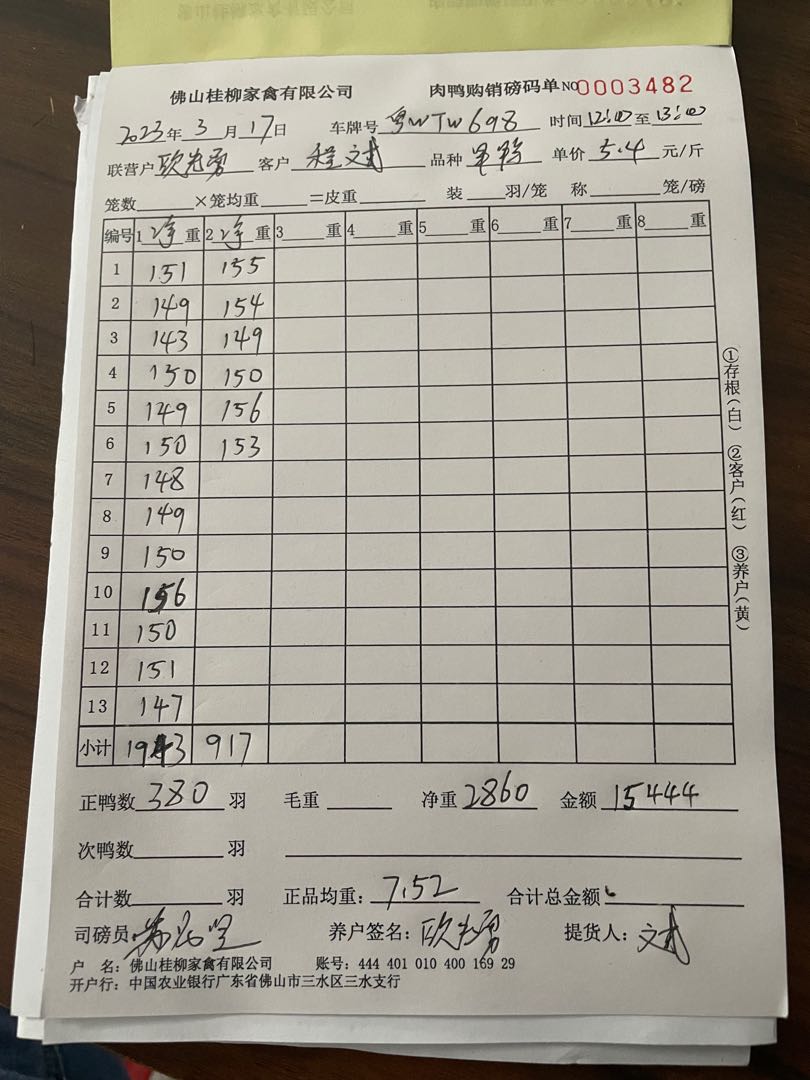 佛山桂柳家禽有限公司 肉鸭购销磅码单 NO0003482
2023年3月17日 车牌号 粤WTW698 时间 12:00 至 13:00
联营户 欧志勇 客户 程文武 品种 单价 5.4 元/斤
笼数 ×笼均重 =皮重 装 羽/笼 称 笼/磅
编号 1 净 重 2 净 重 3 重 4 重 5 重 6 重 7 重 8 重
1 151 155
2 149 154
3 143 149
4 150 150
5 149 156
6 150 153
7 148
8 149
9 150
10 156
11 150
12 151
13 147
小计 1943 917
正鸭数 380 羽 毛重 净重 2860 金额 15444
次鸭数 羽
合计数 羽 正品均重: 7.52 合计总金额
司磅员 养户签名: 欧志勇 提货人: 文武
户 名: 佛山桂柳家禽有限公司 账号: 444 401 010 400 169 29
开户行: 中国农业银行广东省佛山市三水区三水支行
①存根(白) ②客户(红) ③养户(黄)